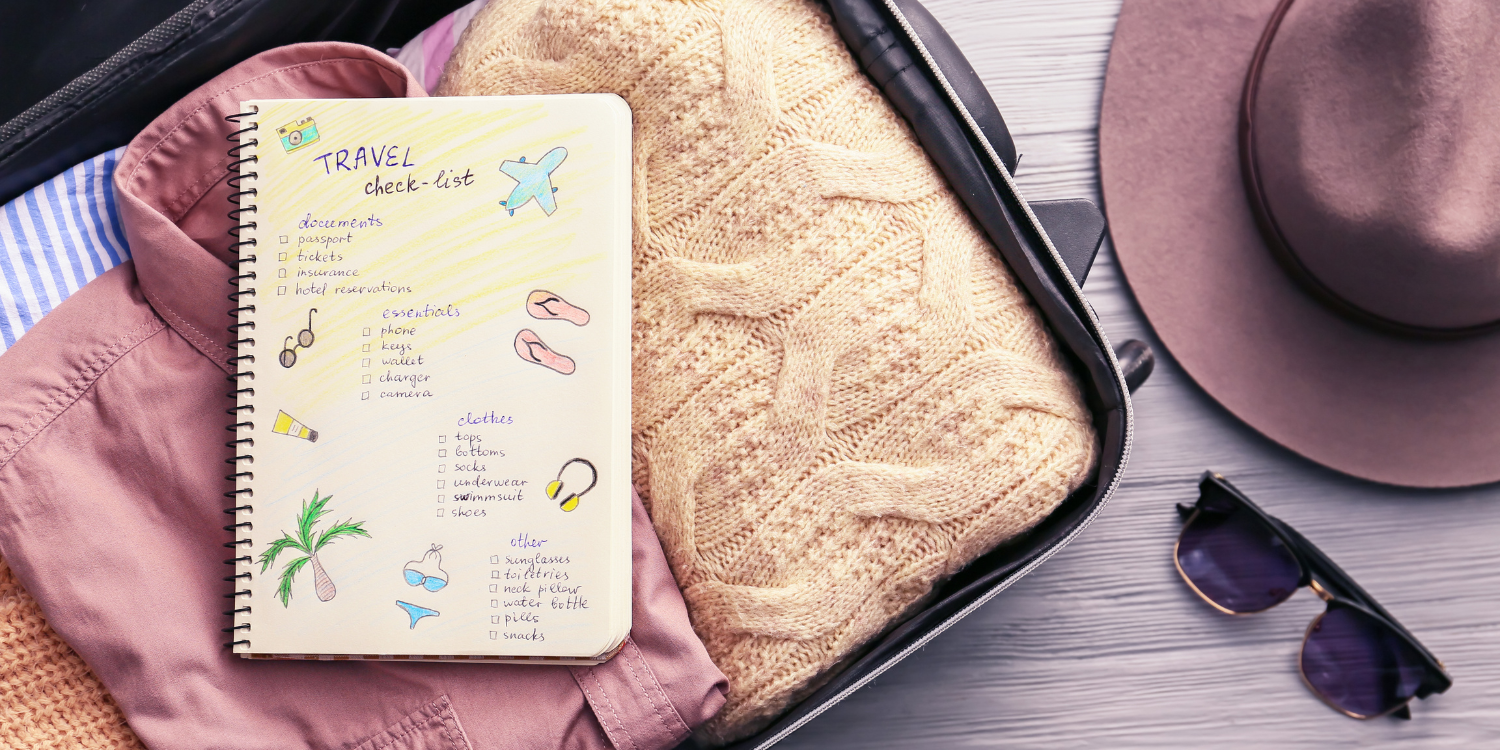 TRAVEL
check-list
documents
passport
tickets
insurance
hotel reservations
essentials
phone
keys
wallet
charger
camera
clothes
tops
bottoms
socks
underwear
swimmsuit
shoes
other
sunglasses
toiletries
neck pillow
water bottle
pills
snacks